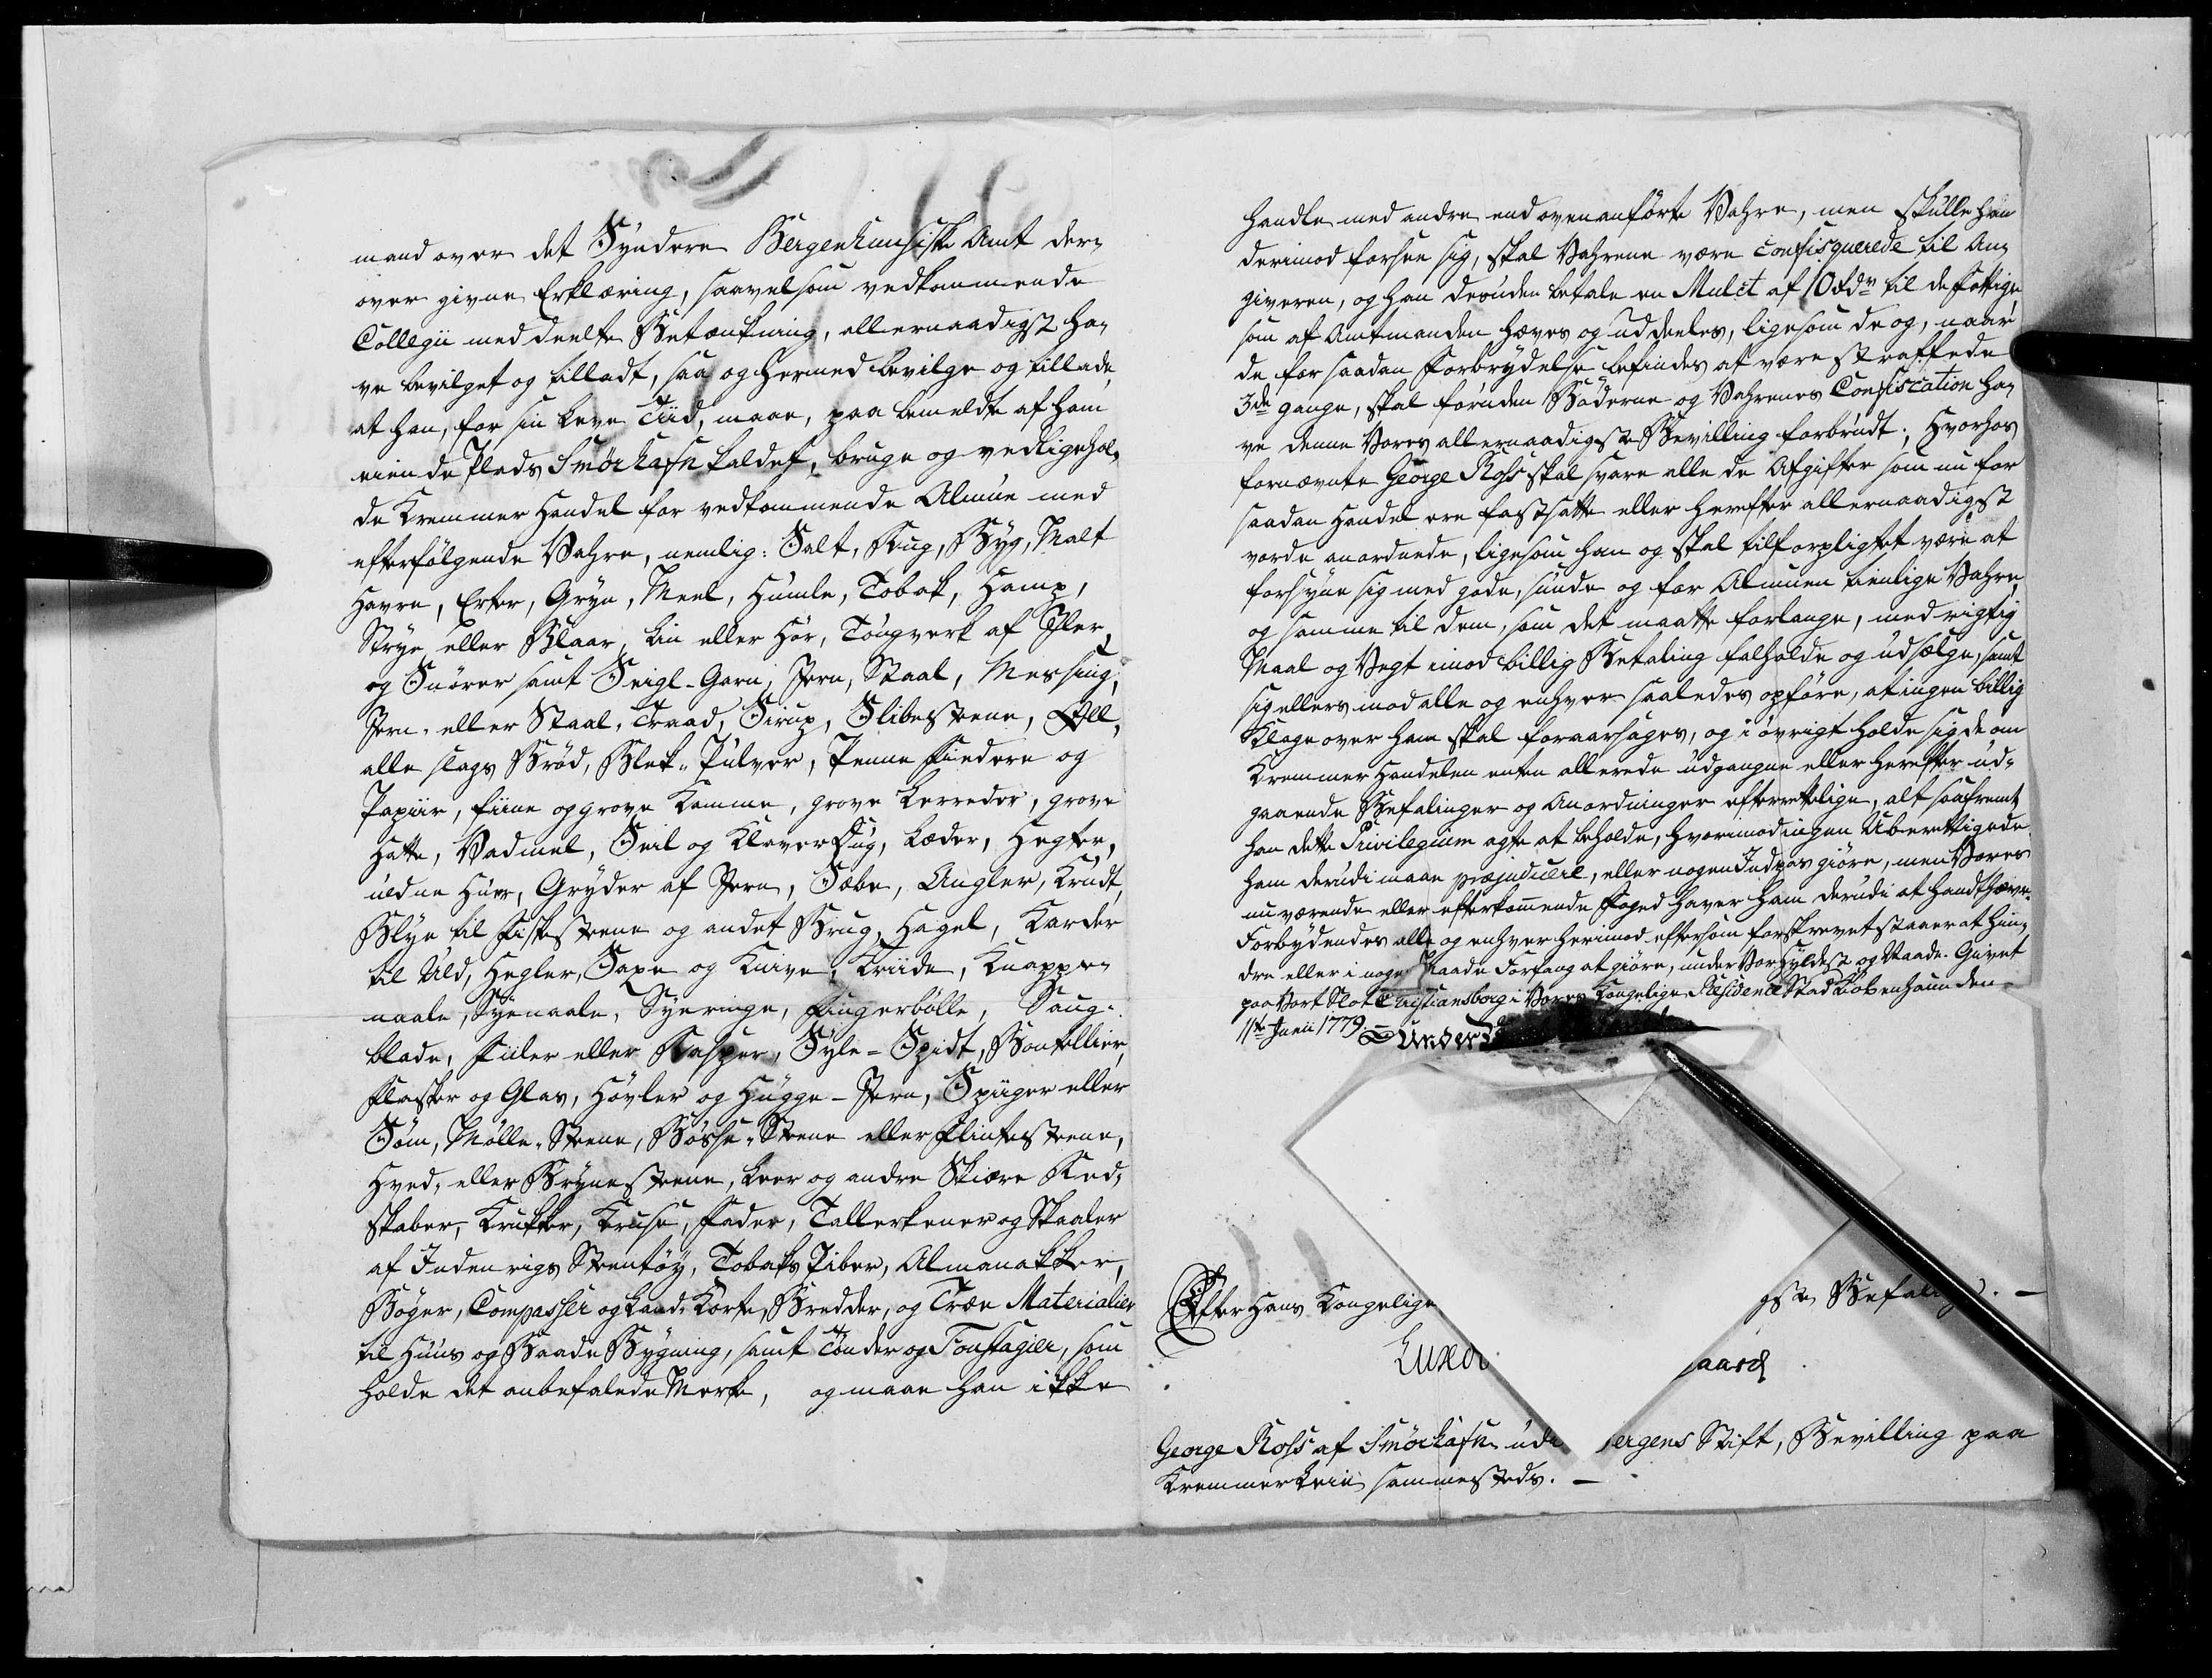 mand over det Syndere Bergenhuusiske Amt der¬
over givne Erklæring, saavelsom vedkommende
Collegii meddeelte Betænkning, allernaadigst ha¬
ve bevilget og tilladt, saa og hermed bevilge og tillade,
at han, for sin Leve Tiid, maae, paa bemeldte af ham
eiende Plads Smörhafn kaldet, bruge og vedligehol¬
de Kremmer Handel for vedkommende Almue med
efterfölgende Vahre, nemlig: Salt, Rug, Byg, Malt
Havre, Erter, Gryn, Meel, Humle, Tobak, Hamp,
Strye eller Blaar, Lin eller Hör, Tougverk af Iler,
og Snörer samt Seigl-Garn, Jern, Staal, Messing,
Jern- eller Staal-Traad, Sirup, Slibesteene, Öll,
alle slags Bröd, Blek-Pulver, Penne Fiedere og
Papiir, fiine og grove Kamme, grove Lerreder, grove
Hatte, Vadmel, Seil og Klaverdug, Læder, Hegter,
uldne Huer, Gryder af Jern, Sæbe, Angler, Krudt,
Blye til Fiskesteene og andet Brug, Hagel, Karder
til Uld, Hegler, Saxe og Knive, Kriide, Knappe-
naale, Syenaale, Syeringe, Fingerbölle, Saug-
blade, Fiiler eller Rasper, Syle-Spidt, Boutellier,
Flasker og Glas, Hövler og Hugge-Jern, Spiiger eller
Söm, Mölle-Steene, Bösse-Steene eller Flintesteene,
Hved- eller Brynesteene, Leer og andre Skiære Red¬
skaber, Krukker, Kruse, Fader, Tallerkener og Skaaler
af Indenrigs Steentöy, Tobaks Piber, Almanakker,
Böger, Compasser og Land-Korte, Bredder, og Træe Materialier
til Huus og Baade Bygning, samt Tönder og Foustagier, som
holde det anbefalede Merke, og maae han ikke
handle med andre end ovenanförte Vahre, men skulle han
derimod forsee sig, skal Vahrene være confisquerede til An¬
giveren, og han desuden betale en Mulct af 10 Rdr til de fattige,
som af Amtmanden hæves og uddeeles, ligesom de og, naar
de for saadan Forbrydelse befindes at være straffede
3de gange, skal foruden Böderne og Vahrenes Confiscation ha¬
ve denne Vores allernaadigste Bevilling forbrudt; Hvorhos
fornævnte George Ross skal svare alle de Afgifter som nu for
saadan Handel ere fastsatte eller herefter allernaadigst
vorde anordnede, ligesom han og skal tilforpligtet være at
forsyne sig med gode, sunde og for Almuen tienlige Vahre,
og samme til dem, som det maatte forlange, med rigtig
Maal og Vegt imod billig Betaling falholde og udsælge, samt
sig ellers mod alle og enhver saaledes opföre, at ingen billig
Klage over ham skal foraarsages, og i övrigt holde sig de om
Kremmer Handelen enten allerede udgangne eller herefter ud-
gaaende Befalinger og Anordninger efterrettelige, alt saafremt
han dette Privilegium agte at beholde, hvorimod ingen Uberettigede
ham derudi maae præjudicere, eller nogen Indpas giöre, men Vores
nu værende eller efterkommende Foged haver ham derudi at handthæve.
Forbydendes alle og enhver herimod eftersom forskrevet staaer at hin¬
dre eller i nogen Maade Forfang at giöre, under Vor Hyldest og Naade. Givet
paa Vort Slot Christiansborg i Vores Kongelige Residence Stad Kiöbenhavn den
11te Junii 1779.
Under
Efter Hans Kongelige
gste Befaling. –
Luxdo
aard
George Ross af Smörhafn udi
ergens Stift, Bevilling paa
Kremmerleie sammesteds. –